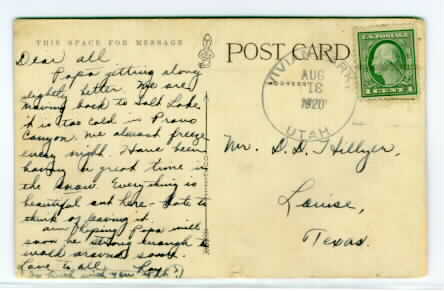 THIS SPACE FOR MESSAGE
POST CARD
U.S. POSTAGE
1 CENT 1
VIVIAN PARK
AUG
18
1920
UTAH
Dear all
Papa gitting along
slightly better. We are
moving back to Salt Lake.
it is too cold in Provo
Canyon. we almost freeze
every night. Have been
having a great time in
the snow. Everything is
beautiful out here - hate to
think of leaving it.
am hoping Papa will
soon be strong enough to
walk around some.
Love to all. Roy
Mr. D. D. Hillyer,
Louise,
Texas.